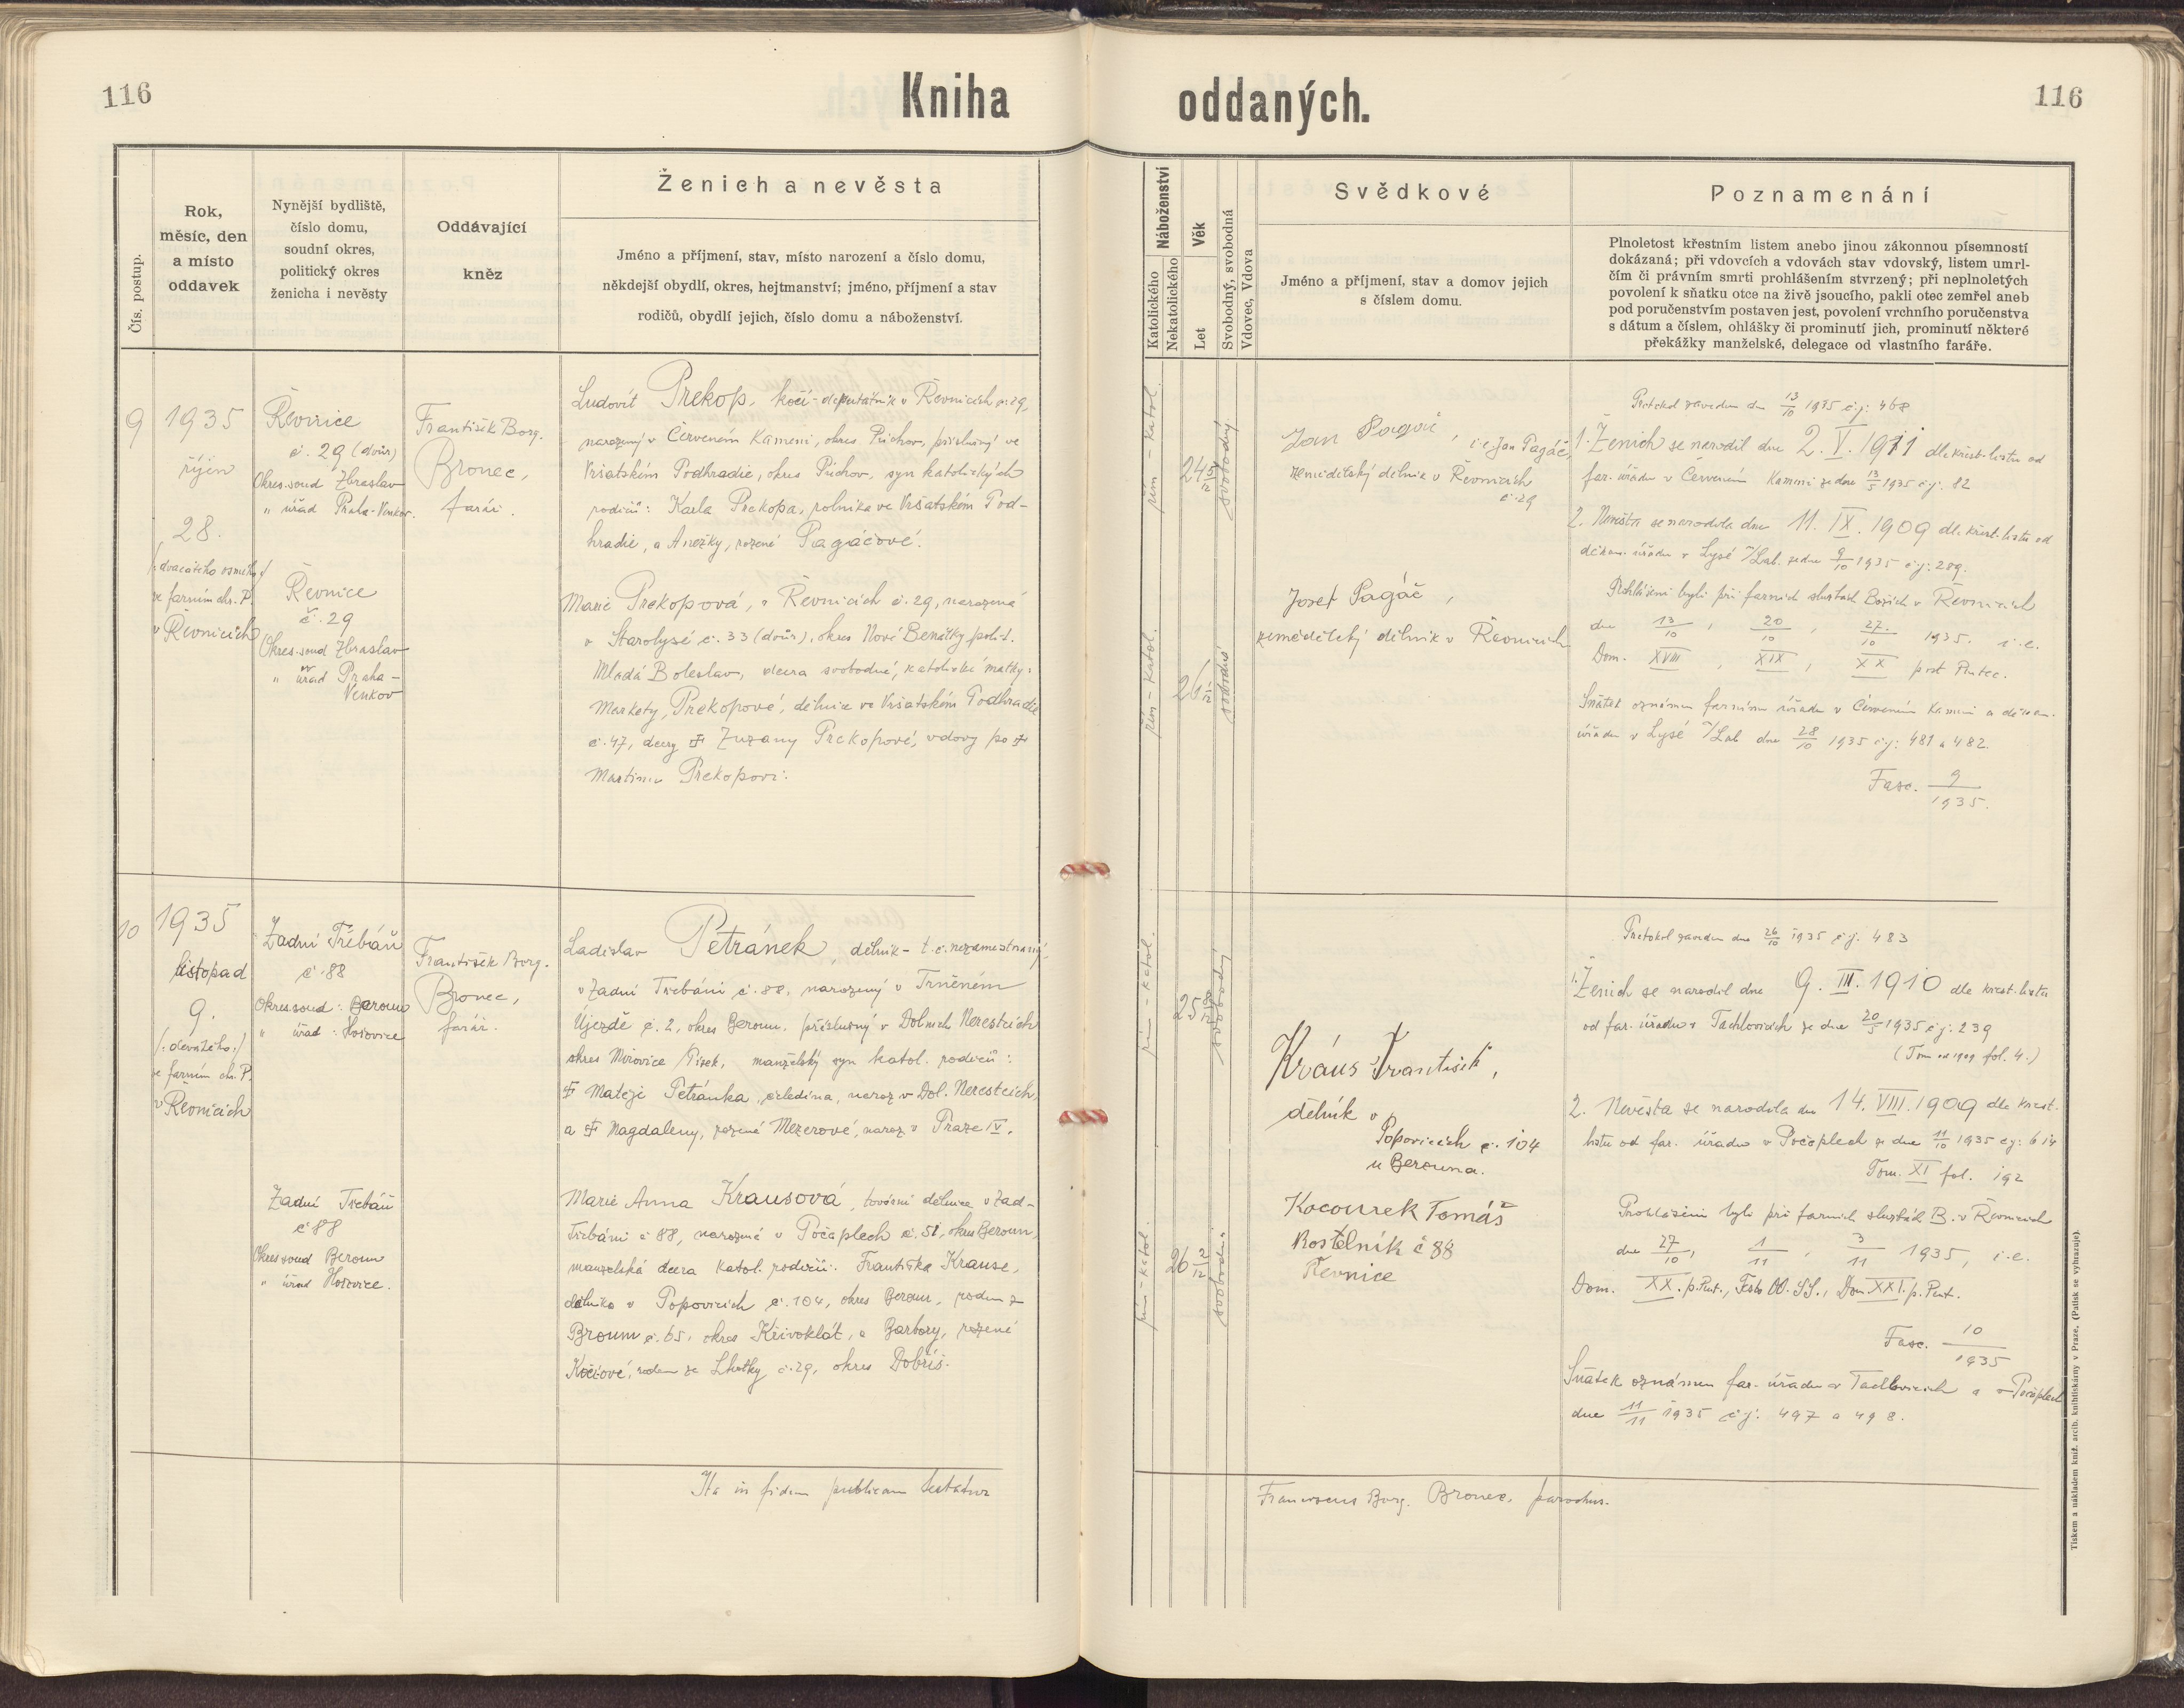 116
Kniha oddaných.
116
Čís. postup.
Rok,
měsíc, den
a místo
oddavek
Nynější bydliště,
číslo domu,
soudní okres,
politický okres
ženicha i nevěsty
Oddávající
kněz
Ženich a nevěsta
Jméno a příjmení, stav, místo narození a číslo domu,
někdejší obydlí, okres, hejtmanství; jméno, příjmení a stav
rodičů, obydlí jejich, číslo domu a náboženství.
Náboženství
Katolického
Nekatolického
Věk
Let
Svobodný, svobodná
Vdovec, Vdova
Svědkové
Jméno a příjmení, stav a domov jejich
s číslem domu.
Poznamenání
Plnoletost křestním listem anebo jinou zákonnou písemností
dokázaná; při vdovcích a vdovách stav vdovský, listem umrl-
čím či právním smrti prohlášením stvrzený; při neplnoletých
povolení k sňatku otce na živě jsoucího, pakli otec zemřel aneb
pod poručenstvím postaven jest, povolení vrchního poručenstva
s dátum a číslem, ohlášky či prominutí jich, prominutí některé
překážky manželské, delegace od vlastního faráře.
9
1935
říjen
28.
/:dvacátého osmého:/
ve farním chr. P.
v Řevnicích
Řevnice
č. 29 (dvůr)
Okres. soud Zbraslav
" úřad Praha-Venkov.
Řevnice
č. 29
Okres. soud Zbraslav
" úřad Praha-
Venkov
František Borg.
Bronec,
farář.
Ludovít Prekop, kočí-deputátník v Řevnicích č. 29,
narozený v Červeném Kameni, okres Púchov, příslušný ve
Vršatském Podhradie, okres Púchov, syn katolických
rodičů: Karla Prekopa, rolníka ve Vršatském Pod-
hradie, a Anežky, rozené Pagáčové.
Marie Prekopová, v Řevnicích č. 29, narozená
v Starolysé č. 33 (dvůr), okres Nové Benátky, polit.
Mladá Boleslav, dcera svobodné, katolické matky:
Markety Prekopové, dělnice ve Vršatském Podhradie
č. 47, dcery † Zuzany Prekopové, vdovy po †
Martinu Prekopovi.
řím-katol.
24 5/12
svobodný
řím-katol.
26 1/12
svobodná
Jan Pagáč, i.e. Jan Pagáč,
zemědělský dělník v Řevnicích
č. 29
Josef Pagáč,
zemědělský dělník v Řevnicích
Protokol zaveden dne 13/10 1935 čj: 468
1. Ženich se narodil dne 2. V. 1911 dle křest. listu od
far. úřadu v Červeném Kameni ze dne 13/5 1935 čj. 82
2. Nevěsta se narodila dne 11. IX. 1909 dle křest. listu od
děkan. úřadu v Lysé n/Lab. ze dne 9/10 1935 čj: 289.
Prohlášeni byli při farních službách Božích v Řevnicích
dne 13/10, 20/10, 27/10 1935. i.e.
Dom. XVIII, XIX, XX post Pntec.
Sňatek oznámen farnímu úřadu v Červeném Kameni a děkan.
úřadu v Lysé n/Lab dne 28/10 1935 čj: 481 a 482.
Fasc. 9/1935.
10
1935
listopad
9.
/:devátého:/
ve farním chr. P.
v Řevnicích
Zadní Třebáň
č. 88
Okres soud: Beroun
" úřad: Hořovice
Zadní Třebáň
č 88
Okres soud Beroun
" úřad Hořovice.
František Borg.
Bronec,
farář.
Ladislav Petránek, dělník - t.č. nezaměstnaný
v Zadní Třebáni č. 88, narozený v Trněném
Újezdě č. 2, okres Beroun, příslušný v Dolních Nerestcích
okres Mirovice/Písek, manželský syn katol. rodičů:
† Matěje Petránka, čeledína, naroz. v Dol. Nerestcích,
a † Magdaleny, rozené Mezerové, naroz v Praze IV.
Marie Anna Krausová, tovární dělnice v Zad-
Třebáni č 88, narozená v Počaplech č. 51, okres Beroun,
manželská dcera katol. rodičů: Františka Krause,
dělníka v Popovicích č. 104, okres Beroun, rodem z
Broum č. 65, okres Křivoklát, a Barbory, rozené
Kočiové, rodem ze Lhotky č. 29, okres Dobříš.
řím-katol.
25 8/12
svobodný
řím-katol.
26 2/12
svobodná
Kráus František,
dělník v
Popovicích č. 104
u Berouna.
Kocourek Tomáš
Kostelník č 88
Řevnice
Protokol zaveden dne 26/10 1935 čj. 483
1. Ženich se narodil dne 9. III. 1910 dle křest. listu
od far. úřadu v Tachlovicích ze dne 20/5 1935 čj: 239
(Tom od 1909 fol. 4.)
2. Nevěsta se narodila dne 14. VIII. 1909 dle křest.
listu od far. úřadu v Počaplech ze dne 11/10 1935 čj: 614
Tom. XI fol. 192
Prohlášeni byli při farních službách B. v Řevnicích
dne 27/10, 1/11, 3/11 1935, i.e.
Dom. XX. p. Pnt., Festo OO. SS., Dom XXI. p. Pnt.
Fasc. 10/1935
Sňatek oznámen far. úřadu v Tachlovicích a v Počaplech
dne 11/11 1935 čj. 497 a 498.
Ita in fidem publicam testatur
Franciscus Borg. Bronec, parochus.
Tiskem a nákladem kníž. arcib. knihtiskárny v Praze. (Patisk se vyhrazuje).